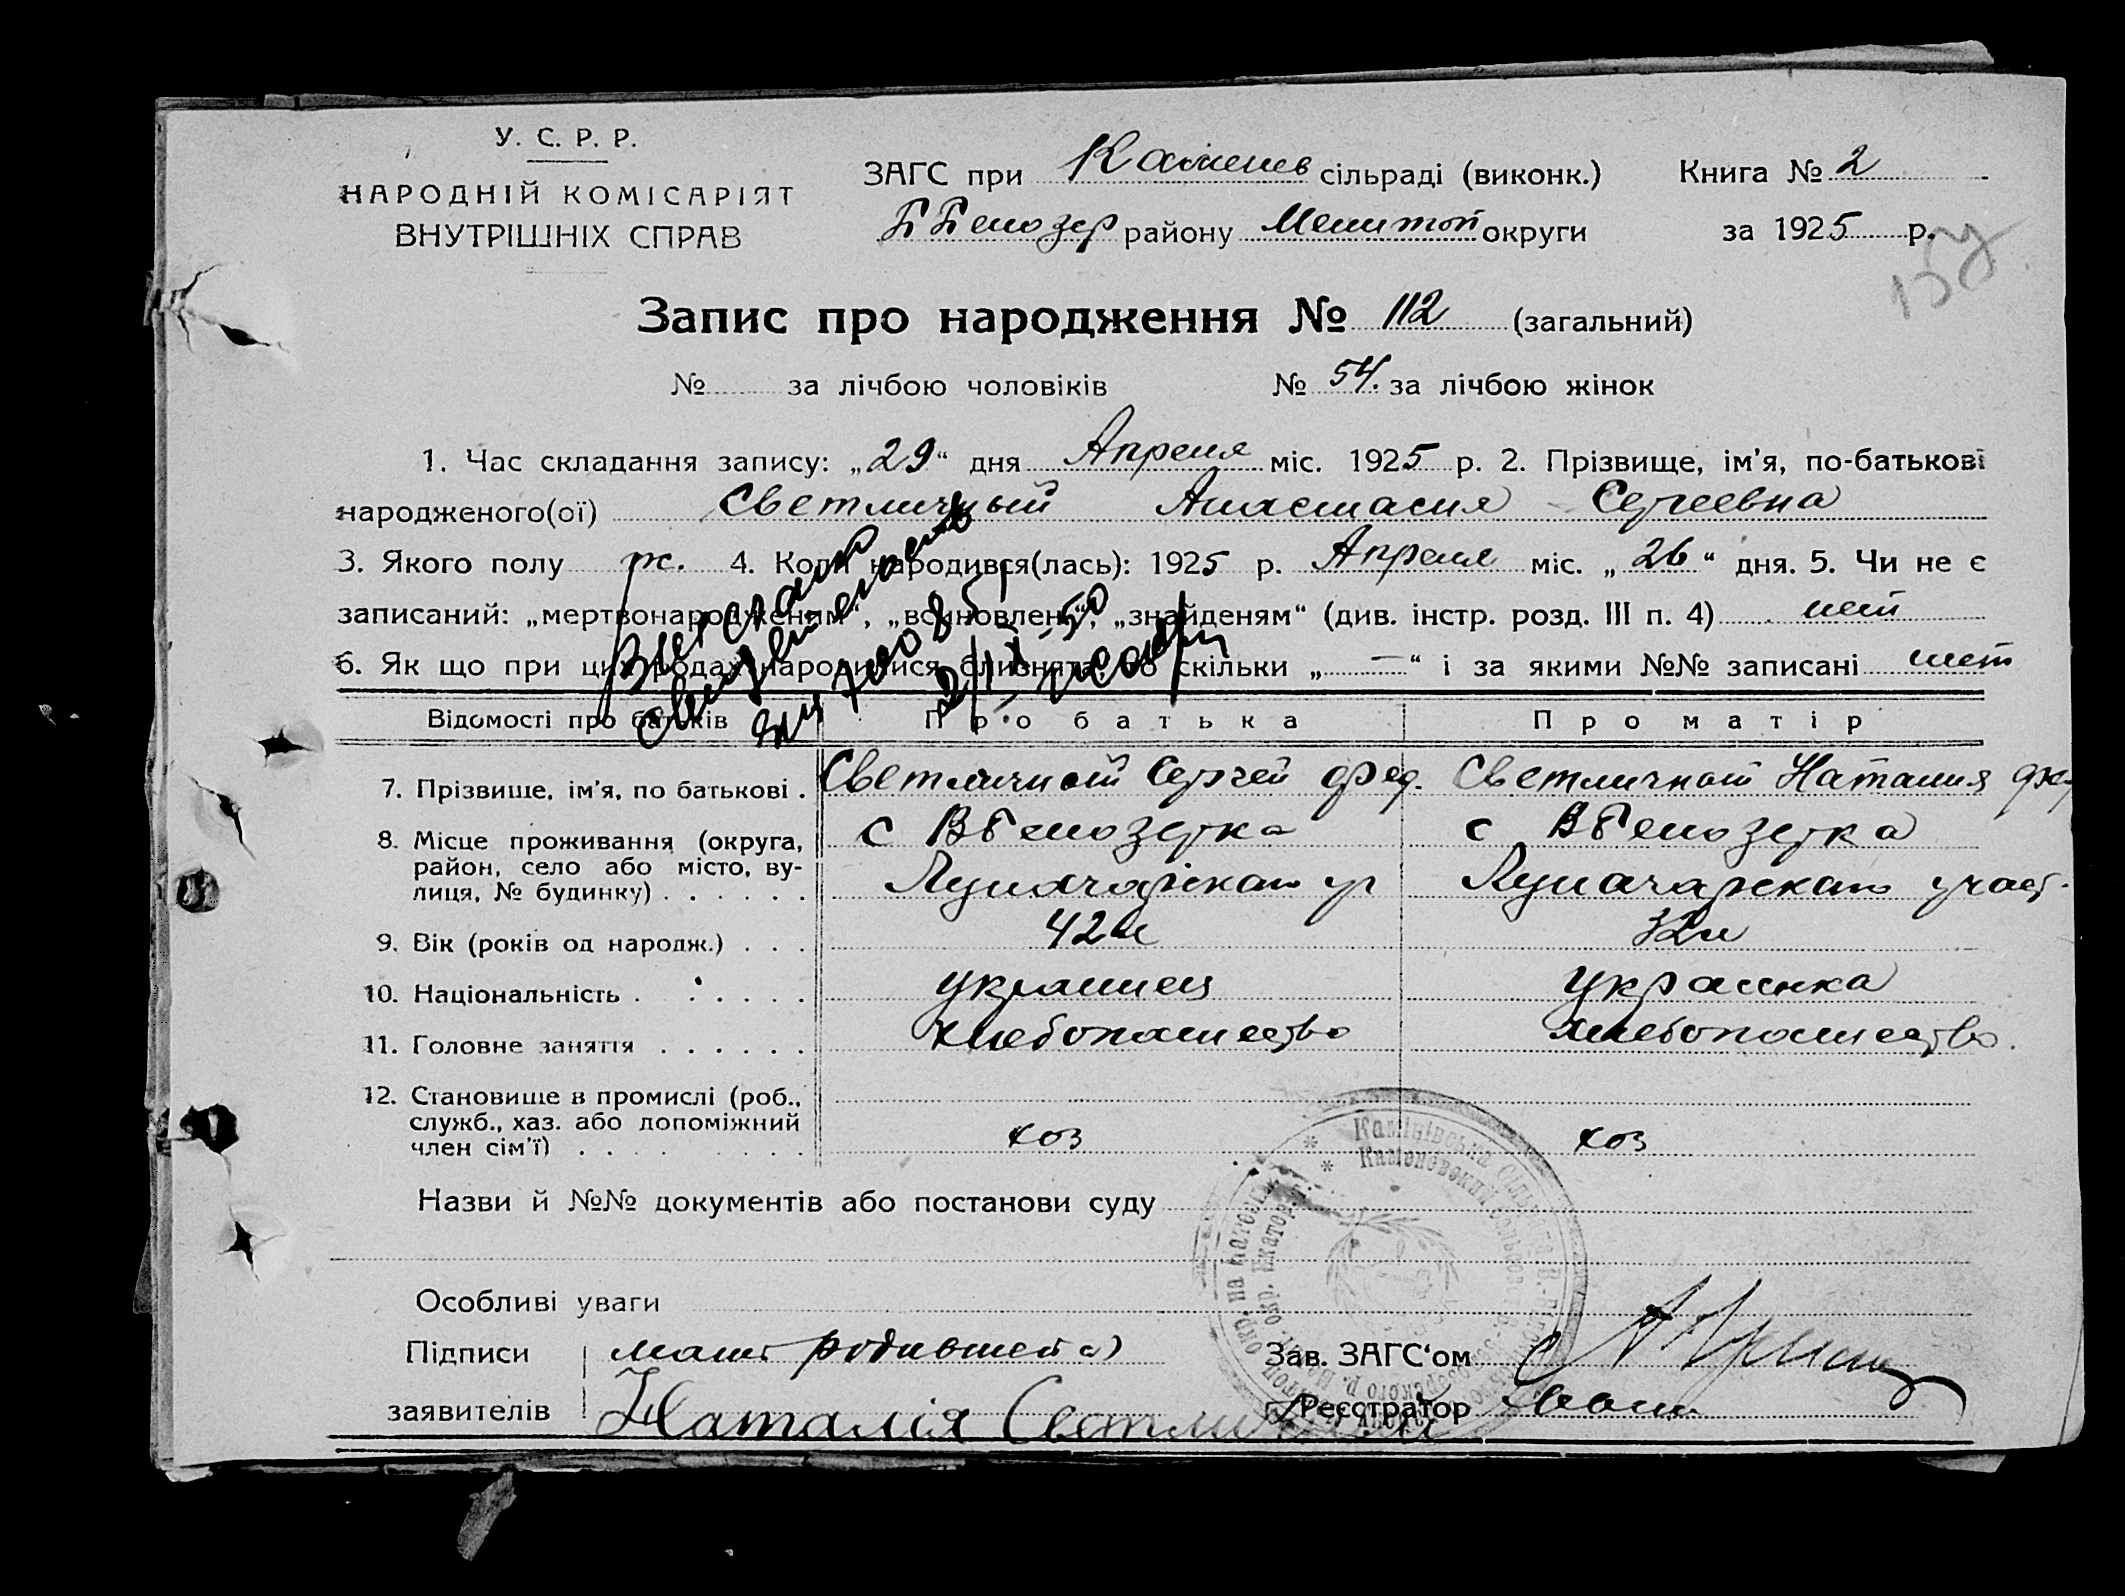 У. С. Р. Р.
НАРОДНІЙ КОМІСАРІЯТ
ВНУТРІШНІХ СПРАВ
ЗАГС при Каменев сільраді (виконк.) Книга № 2
Белозер району Мелитоп округи за 1925 р.
Запис про народження № 112 (загальний)
№ за лічбою чоловіків № 54. за лічбою жінок
1. Час складання запису: „29“ дня Апреля міс. 1925 р. 2. Прізвище, ім’я, по-батькові
народженого(ої) Светличный Анастасия Сергеевна
3. Якого полу ж. 4. Коли народився(лась): 1925 р. Апреля міс. „26“ дня. 5. Чи не є
записаний: „мертвонародженим“, „всиновлену“, „знайденям“ (див. інстр. розд. III п. 4) нет
6. Як що при цих родах народилися близнята, то скільки „—“ і за якими №№ записані нет
Відомості про батьків Про батька Про матір
7. Прізвище, ім’я, по батькові . Светличный Сергей фед. Светличной Наталия
8. Місце проживання (округа, с ВБелозерка с ВБелозерка
район, село або місто, ву-
лиця, № будинку) . . . . . . Луначарскаго уч Луначарскаго участ.
9. Вік (років од народж.) . . . 42 л 32 л
10. Національність . . . . . . украинец украинка
11. Головне заняття . . . . . . хлебопашество хлебопашество.
12. Становище в промислі (роб.,
служб., хаз. або допоміжний
член сім’ї) . . . . . . . . хоз хоз
Назви й №№ документів або постанови суду
Особливі уваги
Підписи мать родившейся Зав. ЗАГС‘ом
заявителів Наталія Светлична Реєстратор